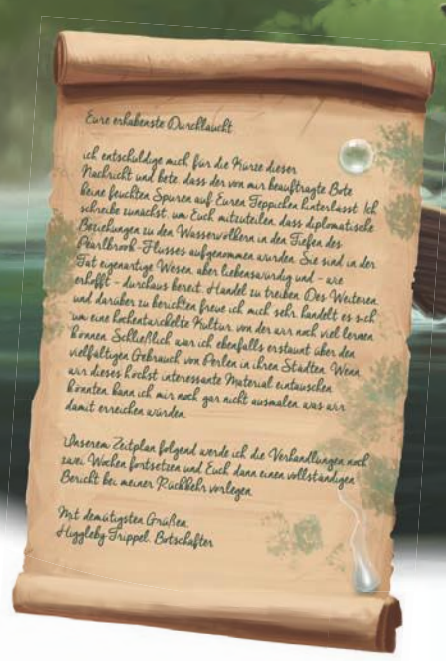 Eure erhabenste Durchlaucht
ich entschuldige mich für die Kürze dieser
Nachricht und bete, dass der von mir beauftragte Bote
keine feuchten Spuren auf Euren Teppichen hinterlässt. Ich
schreibe zunächst, um Euch mitzuteilen, dass diplomatische
Beziehungen zu den Wasservölkern in den Tiefen des
Pearlbrook-Flusses aufgenommen wurden. Sie sind in der
Tat eigenartige Wesen, aber liebenswürdig und – wie
erhofft – durchaus bereit, Handel zu treiben. Des Weiteren,
und darüber zu berichten freue ich mich sehr, handelt es sich
um eine hochentwickelte Kultur, von der wir noch viel lernen
können. Schließlich war ich ebenfalls erstaunt über den
vielfältigen Gebrauch von Perlen in ihren Städten. Wenn
wir dieses höchst interessante Material eintauschen
könnten, kann ich mir noch gar nicht ausmalen, was wir
damit erreichen würden.
Unserem Zeitplan folgend werde ich die Verhandlungen noch
zwei Wochen fortsetzen und Euch dann einen vollständigen
Bericht bei meiner Rückkehr vorlegen.
Mit demütigsten Grüßen,
Higgleby Trippel, Botschafter